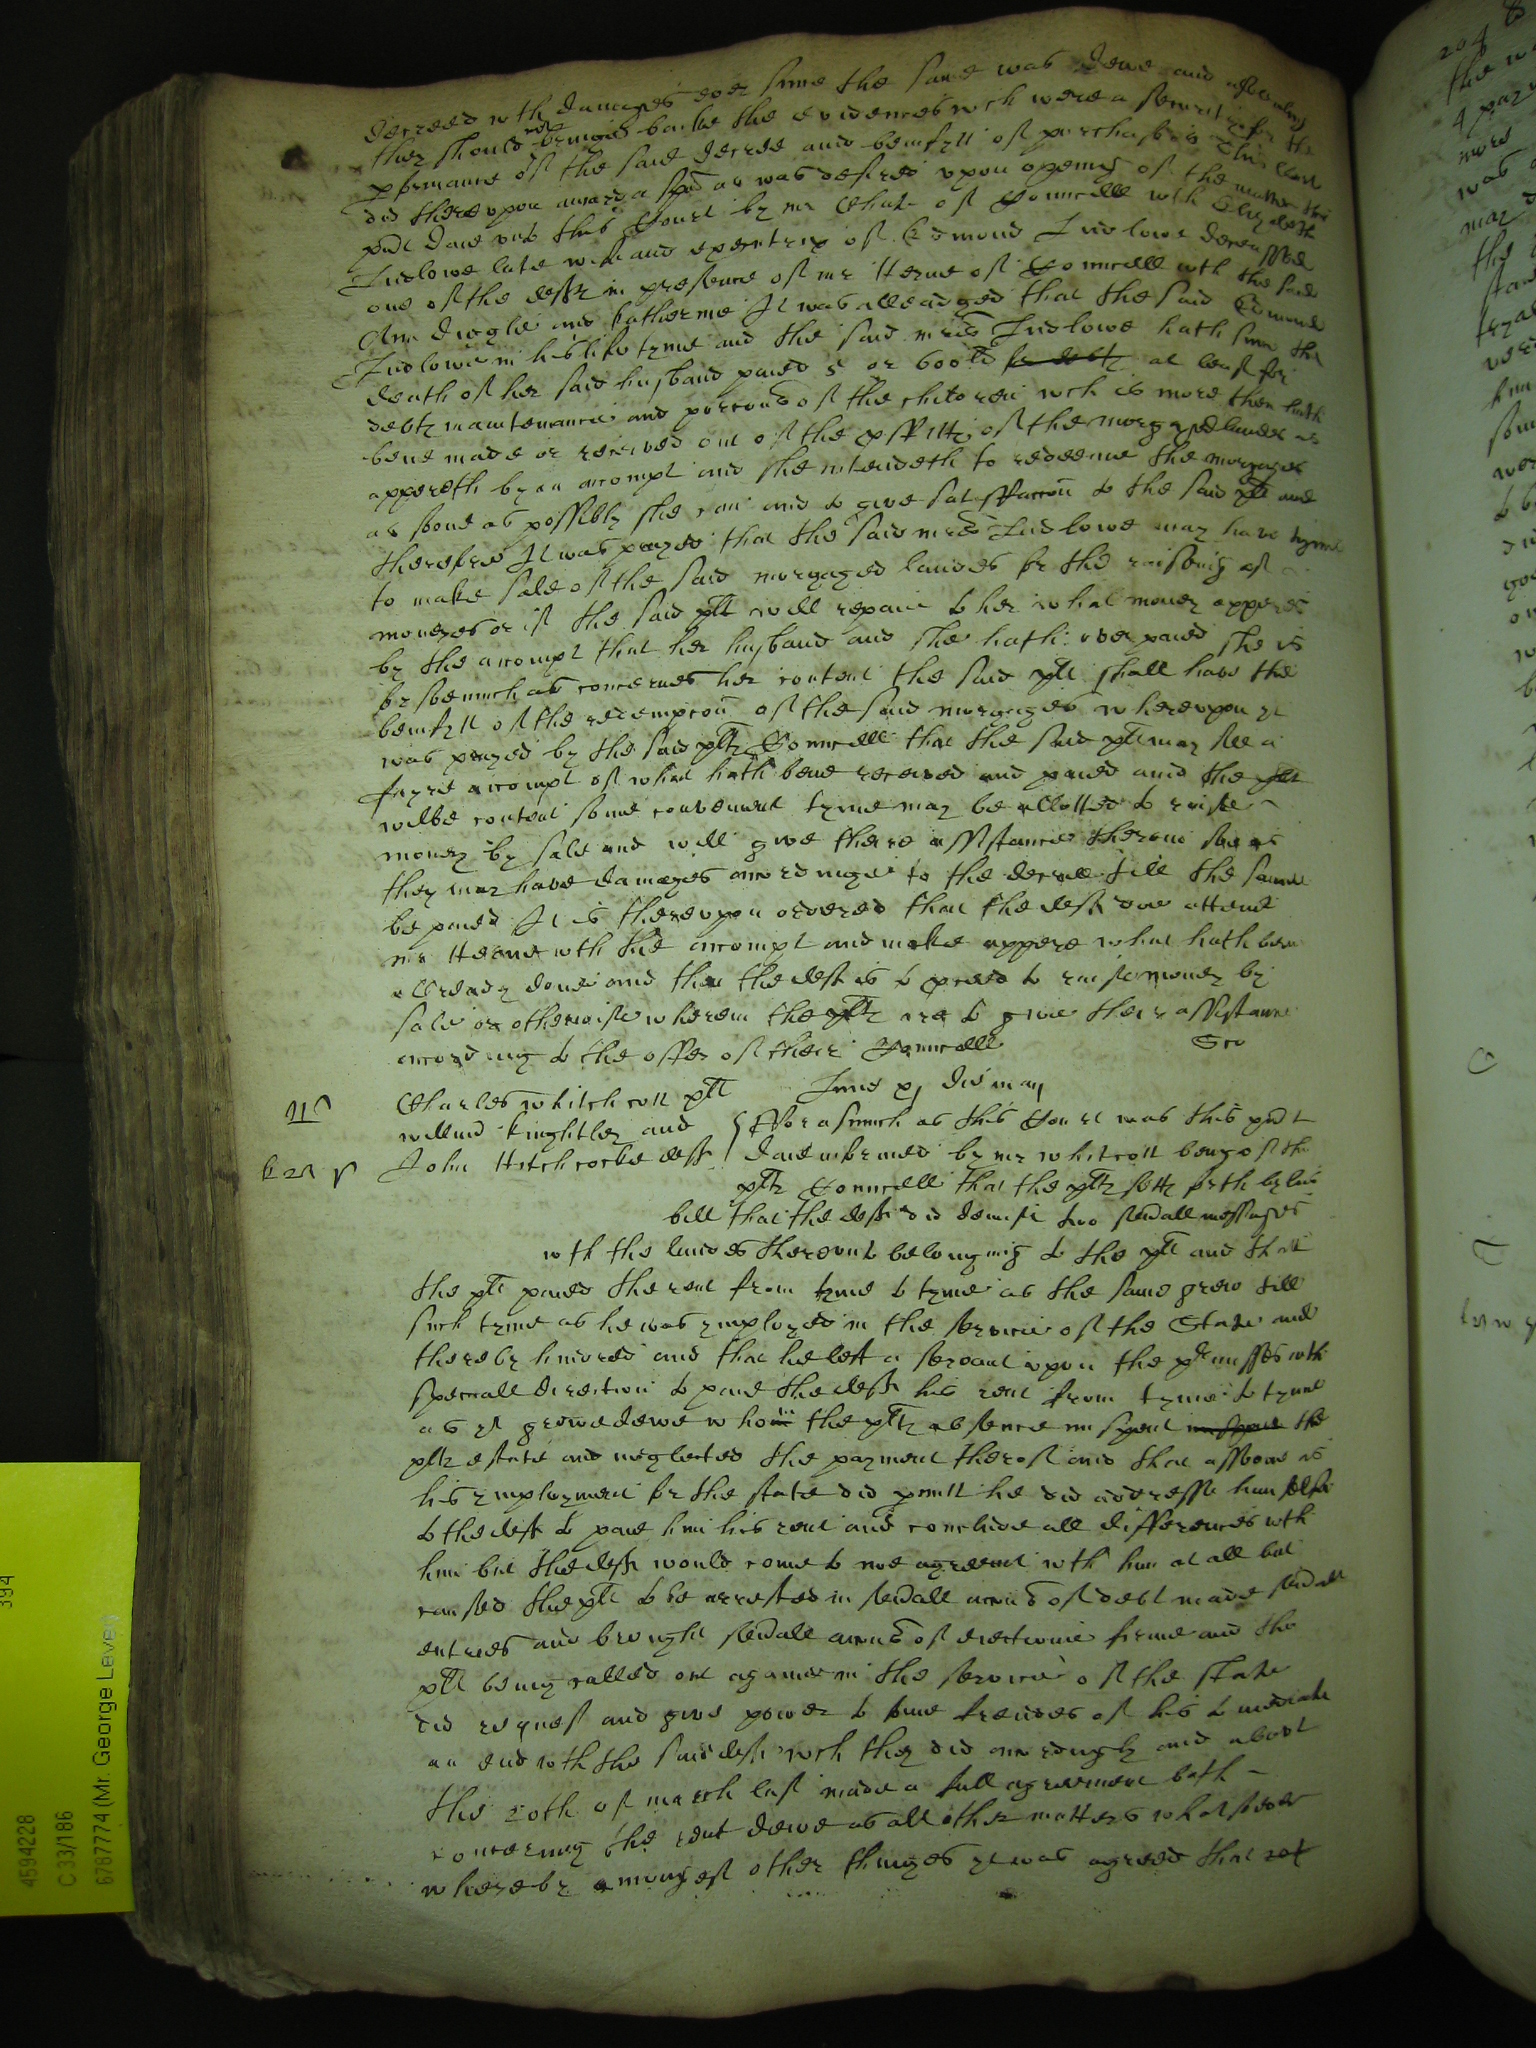 decreed wth damages ever since the same was dewe and
they should not bringe backe the evidences wch were a securitye for the
pformance of the said decree and benifytt of purchasers This Court
did thereupon award a spa as was desired upon opening of the matter this
pnt daie unto this Court by mr Chute of Councell wth Elizabeth
Ludlowe late wife and executrix of Edmond Ludlowe deceassed
one of the defts in presence of mr Herne of Councell wth the said
Ann and Katherine It was alleadged that the said Edmond
Ludlowe in his life tyme and the said mris Ludlowe hath since the
death of her said husband paied 5 or 600li for debtes at least for
debtes maintenance and porcons of the children wch is more then hath
bene made or received out of the proffitts of the morgaged landes as
appereth by an accompt and she intendeth to redeeme the morgages
as soone as possibly she can and to give satisfaccon to the said plt and
therefore It was prayed that the said mris Ludlowe may have tyme
to make sale of the said morgaged landes for the raiseing of
moneyes or if the said plt will repaie to her what money apperes
by the accompt that her husband and she hath over paied she is
for soe much as concernes her content the said plt shall have the
benifytt of the redempcon of the said morgages whereupon yt
was prayed by the said plts Councell that the said plt may see a
fayre accompt of what hath bene received and paied and the plt
wilbe content some convenient tyme may be allotted to raise
money by sale and will give theire assistance therein soe as
they may have damages accordinge to the decree till the same
be paied It is thereupon ordered that the deft doe attend
mr Herne wth the accompt and make appere what hath bene
allready done and then the deft is to proceed to raise money by
sale or otherwise wherein the plts are to give their assistance
according to the offer of their Councell
Lune xj die maij
Charles Whitchcott plt
Willm Knightley and
John Hitchcocke defts
Forasmuch as this Court was this pnt
daie informed by mr Whitcott being of the
plts Councell that the plts setts forth by his
bill that the defts did demise two severall messuages
wth the landes thereunto belonging to the plt and that
the plt paied the rent from tyme to tyme as the same grew till
such tyme as he was ymployed in the service of the State and
thereby hindred and that he left a servant upon the pmisses wth
speciall direction to paie the defts his rent from tyme to tyme
as yt growe dewe who in the plts absence mispent misspent the
plts estate and neglected the payment thereof and that assoone as
his ymployment for the state did pmitt he did addresse him selfe
to the deft to paie him his rent and conclude all differences wth
him but the deft would come to noe agreemt wth him at all but
caused the plt to be arrested in severall accons of debt made severall
entries and brought severall accons of eiectione firme and the
plt being called out againe in the service of the state
did request and give power to some freindes of his to mediate
an end wth the said deft wch they did accordingly and about
the 20th of march last made a full agreement both
concerning the rent dewe as all other matters whatsoever
whereby amongest other thinges yt was agreed that
394
4594228
C 33/186
6787774 (Mr. George Levey)